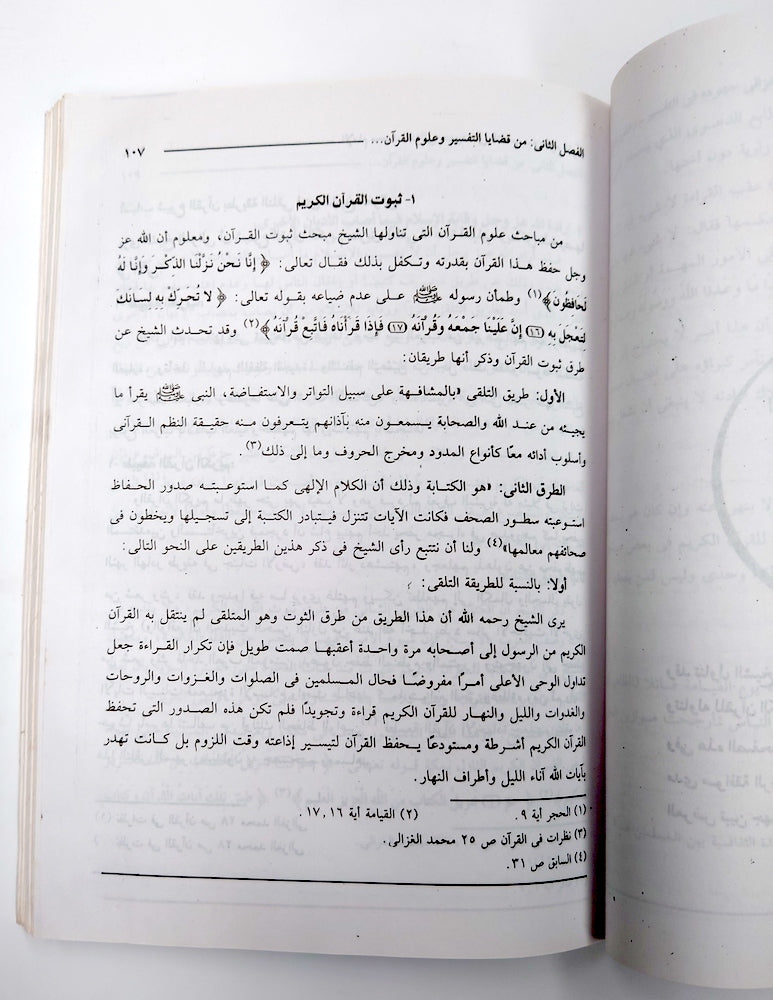 الفصل الثانى: من قضايا التفسير وعلوم القرآن... ١٠٧
١- ثبوت القرآن الكريم
من مباحث علوم القرآن التى تناولها الشيخ مبحث ثبوت القرآن، ومعلوم أن الله عز
وجل حفظ هذا القرآن بقدرته وتكفل بذلك فقال تعالى: ﴿ إِنَّا نَحْنُ نَزَّلْنَا الذِّكْرَ وَإِنَّا لَهُ
لَحَافِظُونَ﴾(١) وطمأن رسوله ﷺ على عدم ضياعه بقوله تعالى: ﴿ لا تُحَرِّكْ بِهِ لِسَانَكَ
لِتَعْجَلَ بِهِ (١٦) إِنَّ عَلَيْنَا جَمْعَهُ وَقُرْآنَهُ (١٧) فَإِذَا قَرَأْنَاهُ فَاتَّبِعْ قُرْآنَهُ ﴾(٢) وقد تحدث الشيخ عن
طرق ثبوت القرآن وذكر أنها طريقان:
الأول: طريق التلقى «بالمشافهة على سبيل التواتر والاستفاضة، النبى ﷺ يقرأ ما
يجيئه من عند الله والصحابة يسمعون منه بآذانهم يتعرفون منه حقيقة النظم القرآنى
وأسلوب أدائه معًا كأنواع المدود ومخرج الحروف وما إلى ذلك(٣).
الطرق الثانى: «هو الكتابة وذلك أن الكلام الإلهى كما استوعبته صدور الحفاظ
استوعبته سطور الصحف فكانت الآيات تتنزل فيتبادر الكتبة إلى تسجيلها ويخطون فى
صحائفهم معالمها»(٤) ولنا أن نتتبع رأى الشيخ فى ذكر هذين الطريقين على النحو التالى:
أولا: بالنسبة للطريقة التلقى:
يرى الشيخ رحمه الله أن هذا الطريق من طرق الثوت وهو المتلقى لم ينتقل به القرآن
الكريم من الرسول إلى أصحابه مرة واحدة أعقبها صمت طويل فإن تكرار القراءة جعل
تداول الوحى الأعلى أمرًا مفروضًا فحال المسلمين فى الصلوات والغزوات والروحات
والغدوات والليل والنهار للقرآن الكريم قراءة وتجويدًا فلم تكن هذه الصدور التى تحفظ
القرآن الكريم أشرطة ومستودعًا يحفظ القرآن لتيسير إذاعته وقت اللزوم بل كانت تهدر
بآيات الله آناء الليل وأطراف النهار.
(١) الحجر أية ٩. (٢) القيامة أية ١٦، ١٧.
(٣) نظرات فى القرآن ص ٢٥ محمد الغزالى.
(٤) السابق ص ٣١.